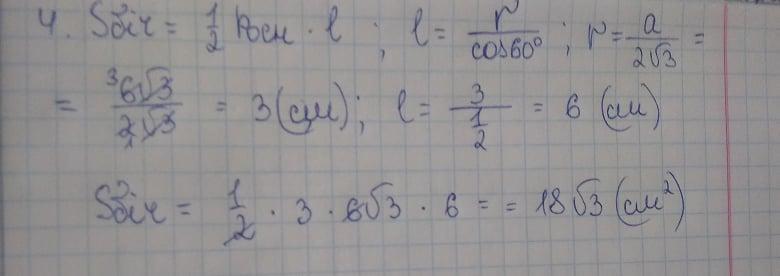 4. Sбіч = 1/2 Pосн · l ; l = r/cos60° ; r = a/2√3 =
= ³6√3/2√3 = 3 (см) ; l = 3/(1/2) = 6 (см)
Sбіч = 1/2 · 3 · 6√3 · 6 = = 18√3 (см²)